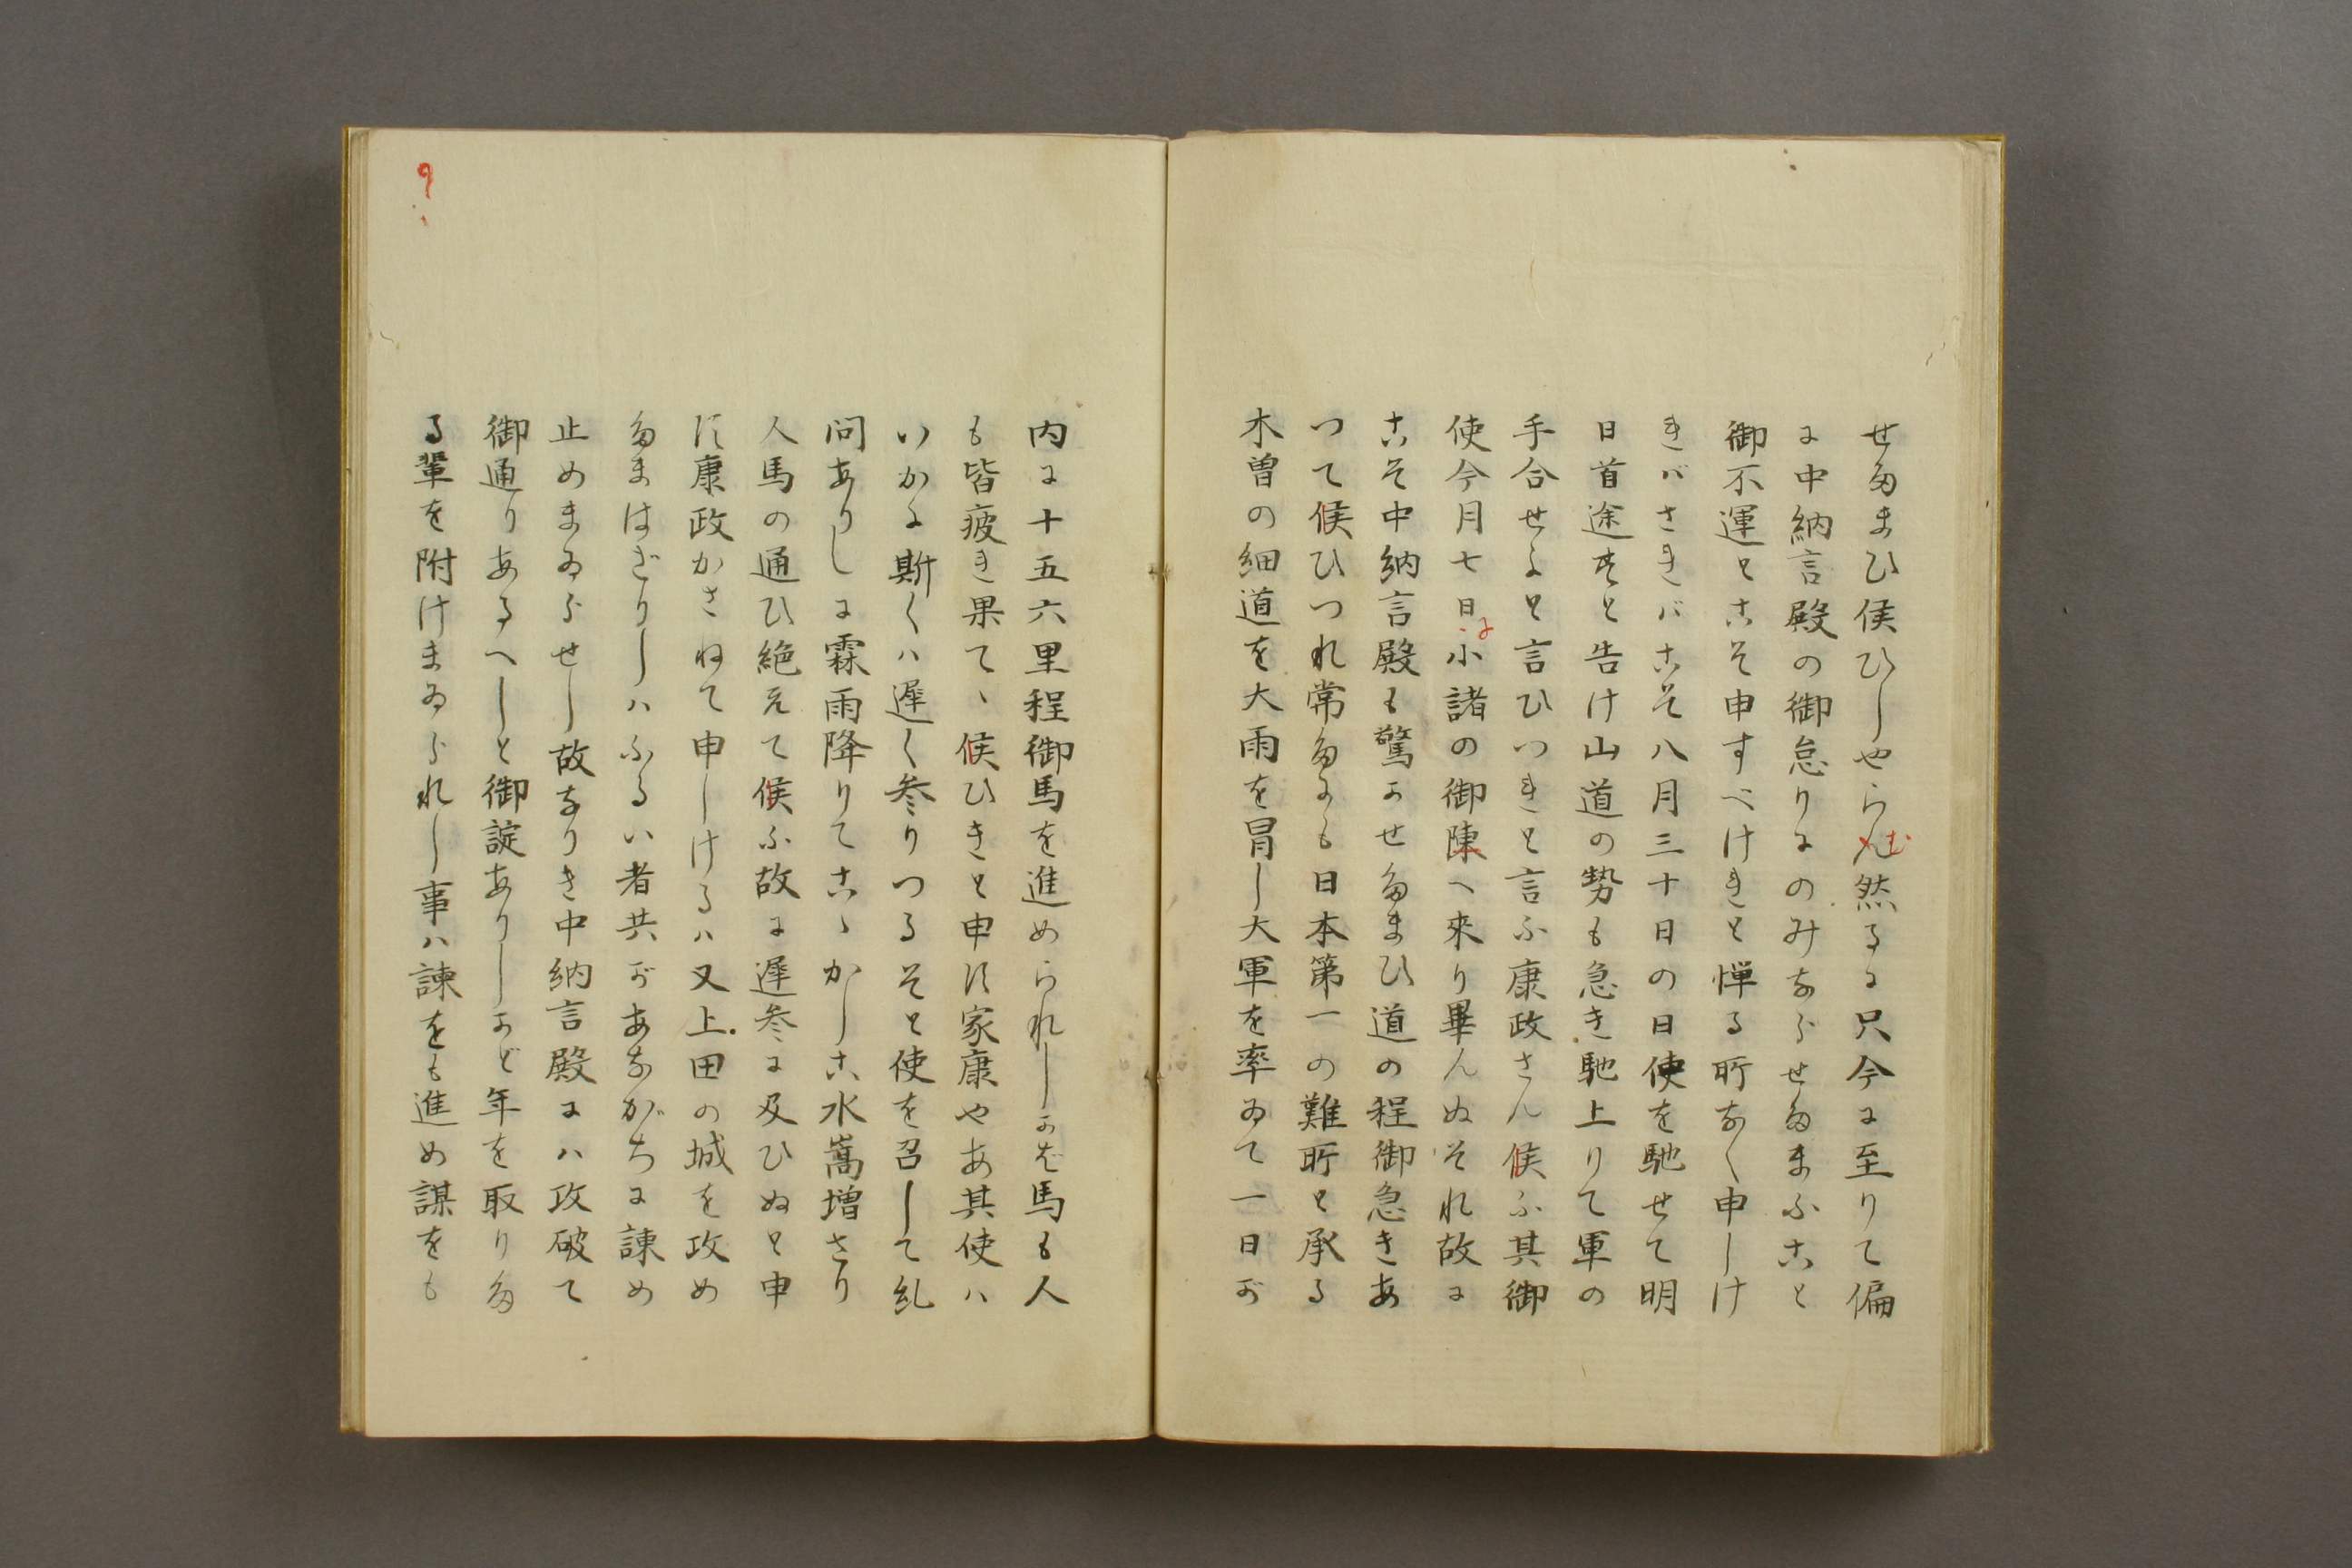 せたまひ侯ひしやらん然るに只今に至りて偏
む
に中納言殿の御怠りにのみならせたまふこと
御不運とこそ申すべけきと憚る所なく申しけ
きバさきバこそ八月三十日の日使を馳せて明
日首途すと告け山道の勢も急き馳上りて軍の
手合せよと言ひつきと言ふ康政さん候ふ其御
使今月七日小諸の御陳へ来り畢んぬそれ故に
に
こそ中納言殿も驚かせたまひ道の程御急きあ
つて候ひつれ常たにも日本第一の難所と承る
木曽の細道を大雨を冒し大軍を率ゐて一日が
内に十五六里程御馬を進められしかば馬も人
も皆疲き果てヽ候ひきと申す家康やあ其使ハ
いかに斯くハ遅く参りつるそと使を召して糺
問ありしに霖雨降りてこヽかしこ水嵩増さり
人馬の通ひ絶えて候ふ故に遅参に及ひぬと申
す康政かさねて申しけるハ又上田の城を攻め
たまはざりしハふるい者共があながちに諫め
止めまゐらせし故なりき中納言殿にハ攻破て
御通りあるへしと御諚ありしかど年を取りた
る輩を附けまゐられし事ハ諫をも進め謀をも